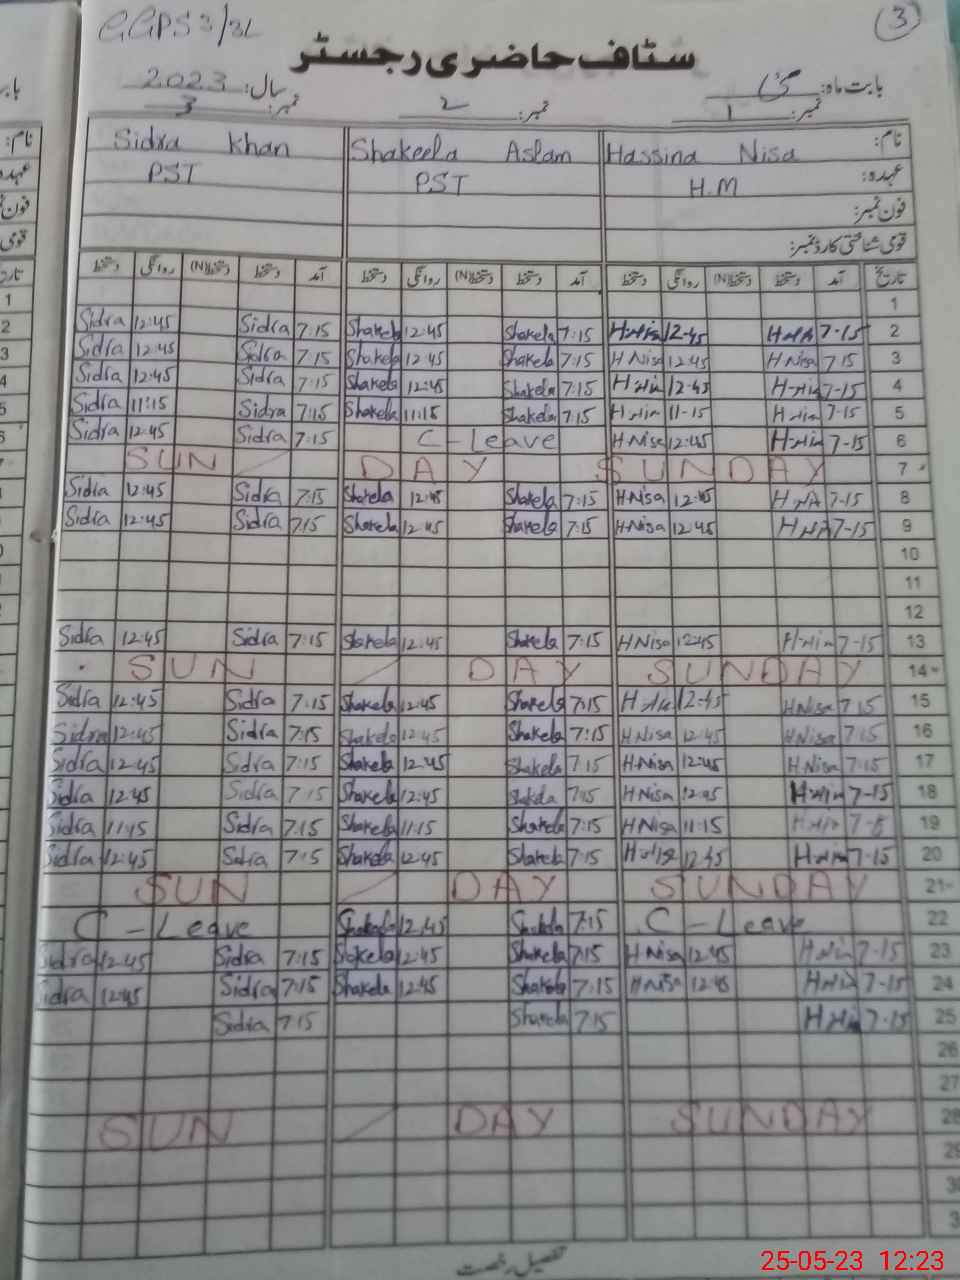 GGPS 3/3L
3
سٹاف حاضری رجسٹر
بابت ماہ: مئی سال: 2023
نمبر: 1 نمبر: 2 نمبر: 3
Sidra Khan Shakeela Aslam Hassina Nisa نام:
PST PST H.M عہدہ:
فون نمبر:
قومی شناختی کارڈ نمبر:
دستخط روانگی دستخط(N) دستخط آمد دستخط روانگی دستخط(N) دستخط آمد دستخط روانگی دستخط(N) دستخط آمد تاریخ
1
Sidra 12:45 Sidra 7:15 Shakela 12:45 Shakela 7:15 H Nisa 12-45 7-15 2
Sidra 12:45 Sidra 7:15 Shakela 12:45 Shakela 7:15 H Nisa 12:45 H Nisa 7 15 3
Sidra 12:45 Sidra 7:15 Shakela 12:45 Shakela 7:15 12-45 7-15 4
Sidra 11:15 Sidra 7:15 Shakela 11:15 Shakela 7:15 11-15 7-15 5
Sidra 12:45 Sidra 7:15 C-Leave H Nisa 12:45 7-15 6
SUN DAY SUNDAY 7
Sidra 12:45 Sidra 7:15 Shakela 12:45 Shakela 7:15 H Nisa 12:45 7-15 8
Sidra 12:45 Sidra 7:15 Shakela 12:45 Shakela 7:15 H Nisa 12:45 7-15 9
10
11
12
Sidra 12:45 Sidra 7:15 Shakela 12:45 Shakela 7:15 H Nisa 12:45 7-15 13
SUN DAY SUNDAY 14
Sidra 12:45 Sidra 7:15 Shakela 12:45 Shakela 7:15 12-45 H Nisa 7 15 15
Sidra 12:45 Sidra 7:15 Shakela 12:45 Shakela 7:15 H Nisa 12:45 H Nisa 7 15 16
Sidra 12:45 Sidra 7:15 Shakela 12:45 Shakela 7:15 H Nisa 12:45 H Nisa 7:15 17
Sidra 12:45 Sidra 7:15 Shakela 12:45 Shakela 7:15 H Nisa 12:45 7-15 18
Sidra 11:15 Sidra 7:15 Shakela 11:15 Shakela 7:15 H Nisa 11:15 19
Sidra 12:45 Sidra 7:15 Shakela 12:45 Shakela 7:15 12-45 7-15 20
SUN DAY SUNDAY 21
C-Leave Shakela 12:45 Shakela 7:15 C-Leave 22
Sidra 12:45 Sidra 7:15 Shakela 12:45 Shakela 7:15 H Nisa 12:45 7-15 23
Sidra 12:45 Sidra 7:15 Shakela 12:45 Shakela 7:15 H Nisa 12:45 7-15 24
Sidra 7:15 Shakela 7:15 7-15 25
26
27
SUN DAY SUNDAY 28
29
تفصیل رخصت
25-05-23 12:23